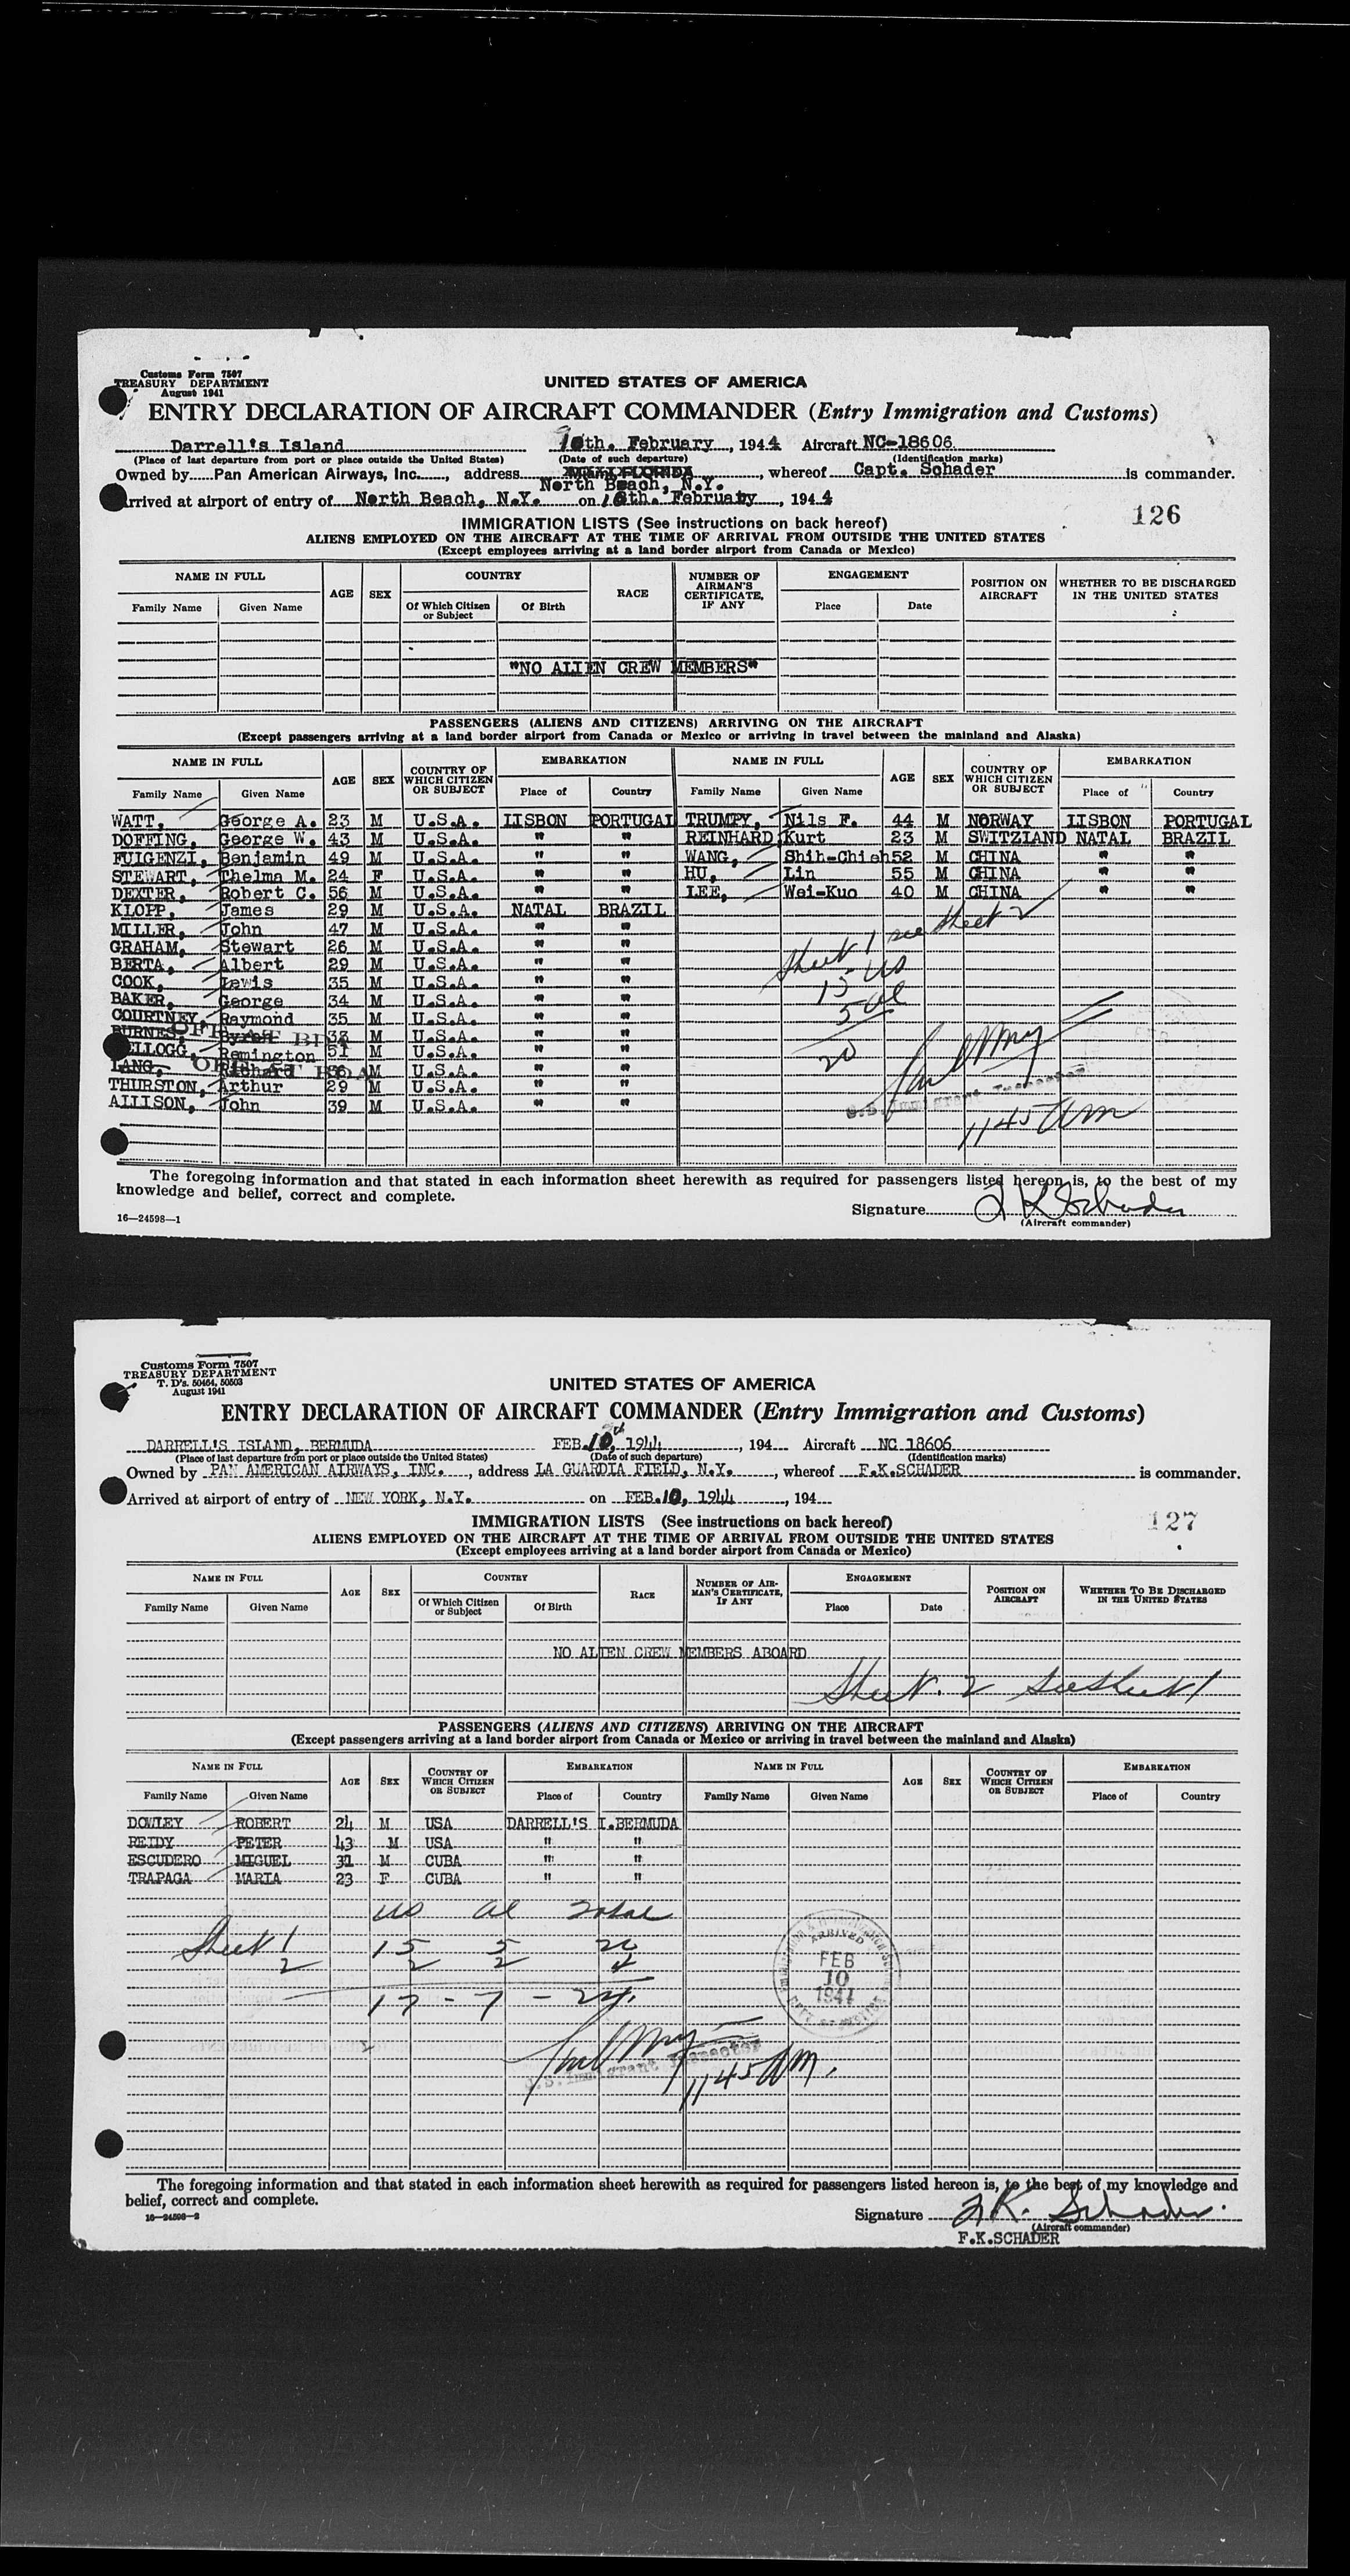 Customs Form 7507
TREASURY DEPARTMENT
August 1941
UNITED STATES OF AMERICA
ENTRY DECLARATION OF AIRCRAFT COMMANDER (Entry Immigration and Customs)
Darrell's Island 10th. February, 1944 Aircraft NC-18606
(Place of last departure from port or place outside the United States) (Date of such departure) (Identification marks)
Owned by Pan American Airways, Inc., address MIAMI FLORIDA, whereof Capt. Schader is commander.
North Beach, N.Y.
Arrived at airport of entry of North Beach, N.Y. on 10th. February, 1944
126
IMMIGRATION LISTS (See instructions on back hereof)
ALIENS EMPLOYED ON THE AIRCRAFT AT THE TIME OF ARRIVAL FROM OUTSIDE THE UNITED STATES
(Except employees arriving at a land border airport from Canada or Mexico)
NAME IN FULL AGE SEX COUNTRY RACE NUMBER OF AIRMAN'S CERTIFICATE, IF ANY ENGAGEMENT POSITION ON AIRCRAFT WHETHER TO BE DISCHARGED IN THE UNITED STATES
Family Name Given Name Of Which Citizen or Subject Of Birth Place Date
"NO ALIEN CREW MEMBERS"
PASSENGERS (ALIENS AND CITIZENS) ARRIVING ON THE AIRCRAFT
(Except passengers arriving at a land border airport from Canada or Mexico or arriving in travel between the mainland and Alaska)
NAME IN FULL AGE SEX COUNTRY OF WHICH CITIZEN OR SUBJECT EMBARKATION NAME IN FULL AGE SEX COUNTRY OF WHICH CITIZEN OR SUBJECT EMBARKATION
Family Name Given Name Place of Country Family Name Given Name Place of Country
WATT, George A. 23 M U.S.A. LISBON PORTUGAL TRUMPY, Nils F. 44 M NORWAY LISBON PORTUGAL
DOFFING, George W. 43 M U.S.A. " " REINHARD, Kurt 23 M SWITZLAND NATAL BRAZIL
FUIGENZI, Benjamin 49 M U.S.A. " " WANG, Shih-Chieh 52 M CHINA " "
STEWART, Thelma M. 24 F U.S.A. " " HU, Lin 55 M CHINA " "
DEXTER, Robert C. 56 M U.S.A. " " LEE, Wei-Kuo 40 M CHINA " "
KLOPP, James 29 M U.S.A. NATAL BRAZIL
MILLER, John 47 M U.S.A. " "
GRAHAM, Stewart 26 M U.S.A. " " Sheet 1 see Sheet 2
BERTA, Albert 29 M U.S.A. " "
COOK, Lewis 35 M U.S.A. " " 15 US
BAKER, George 34 M U.S.A. " " 5 al
COURTNEY, Raymond 35 M U.S.A. " "
BURNES, Byron 33 M U.S.A. " " 20
KELLOGG, Remington 51 M U.S.A. " "
LANG, Richard 36 M U.S.A. " "
THURSTON, Arthur 29 M U.S.A. " " U.S. Immigrant Inspector
ALLISON, John 39 M U.S.A. " " 1145 AM
The foregoing information and that stated in each information sheet herewith as required for passengers listed hereon is, to the best of my
knowledge and belief, correct and complete.
Signature F K Schader
(Aircraft commander)
16—24598—1
Customs Form 7507
TREASURY DEPARTMENT
T. D's. 50464, 50503
August 1941
UNITED STATES OF AMERICA
ENTRY DECLARATION OF AIRCRAFT COMMANDER (Entry Immigration and Customs)
DARRELL'S ISLAND, BERMUDA FEB. 10, 1944, 194 Aircraft NC 18606
(Place of last departure from port or place outside the United States) (Date of such departure) (Identification marks)
Owned by PAN AMERICAN AIRWAYS, INC., address LA GUARDIA FIELD, N.Y., whereof F.K.SCHADER is commander.
Arrived at airport of entry of NEW YORK, N.Y. on FEB.10, 1944, 194
127
IMMIGRATION LISTS (See instructions on back hereof)
ALIENS EMPLOYED ON THE AIRCRAFT AT THE TIME OF ARRIVAL FROM OUTSIDE THE UNITED STATES
(Except employees arriving at a land border airport from Canada or Mexico)
NAME IN FULL AGE SEX COUNTRY RACE NUMBER OF AIRMAN'S CERTIFICATE, IF ANY ENGAGEMENT POSITION ON AIRCRAFT WHETHER TO BE DISCHARGED IN THE UNITED STATES
Family Name Given Name Of Which Citizen or Subject Of Birth Place Date
NO ALIEN CREW MEMBERS ABOARD
Sheet 2 see Sheet 1
PASSENGERS (ALIENS AND CITIZENS) ARRIVING ON THE AIRCRAFT
(Except passengers arriving at a land border airport from Canada or Mexico or arriving in travel between the mainland and Alaska)
NAME IN FULL AGE SEX COUNTRY OF WHICH CITIZEN OR SUBJECT EMBARKATION NAME IN FULL AGE SEX COUNTRY OF WHICH CITIZEN OR SUBJECT EMBARKATION
Family Name Given Name Place of Country Family Name Given Name Place of Country
DOWLEY ROBERT 24 M USA DARRELL'S I.BERMUDA
REIDY PETER 43 M USA " "
ESCUDERO MIGUEL 31 M CUBA " "
TRAPAGA MARIA 23 F CUBA " "
US al Total
Sheet 1 15 5 20
2 2 2 4
17 - 7 - 24
ARRIVED
FEB
10
1944
U.S. Immigrant Inspector
1145 AM.
The foregoing information and that stated in each information sheet herewith as required for passengers listed hereon is, to the best of my knowledge and
belief, correct and complete.
16—24598—2
Signature F.K. Schader.
(Aircraft commander)
F.K.SCHADER